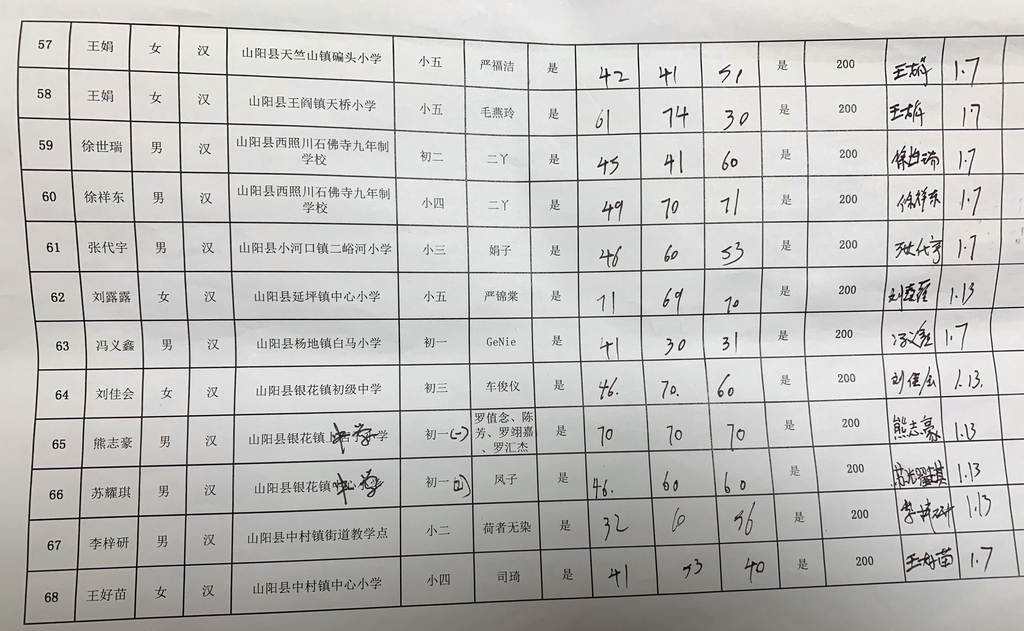 57 王娟 女 汉 山阳县天竺山镇碥头小学 小五 严福洁 是 42 41 51 是 200 1.7
58 王娟 女 汉 山阳县王阎镇天桥小学 小五 毛燕玲 是 61 74 30 是 200 1.7
59 徐世瑞 男 汉 山阳县西照川石佛寺九年制学校 初二 二丫 是 45 41 60 是 200 徐世瑞 1.7
60 徐祥东 男 汉 山阳县西照川石佛寺九年制学校 小四 二丫 是 49 70 71 是 200 徐祥东 1.7
61 张代宇 男 汉 山阳县小河口镇二峪河小学 小三 娟子 是 46 60 53 是 200 张代宇 1.7
62 刘露露 女 汉 山阳县延坪镇中心小学 小五 严锦棠 是 71 69 70 是 200 1.13
63 冯义鑫 男 汉 山阳县杨地镇白马小学 初一 GeNie 是 41 30 31 是 200 冯义鑫 1.7
64 刘佳会 女 汉 山阳县银花镇初级中学 初三 车俊仪 是 46. 70. 60 是 200 刘佳会 1.13.
65 熊志豪 男 汉 山阳县银花镇中学 初一(一) 罗值念、陈芳、罗翊嘉、罗汇杰 是 70 70 70 是 200 熊志豪 1.13
66 苏耀琪 男 汉 山阳县银花镇中学 初一 凤子 是 46. 60 60 是 200 苏耀琪 1.13
67 李梓研 男 汉 山阳县中村镇街道教学点 小二 荷者无染 是 32 60 56 是 200 李梓研 1.13
68 王好苗 女 汉 山阳县中村镇中心小学 小四 司琦 是 41 53 40 是 200 王好苗 1.7